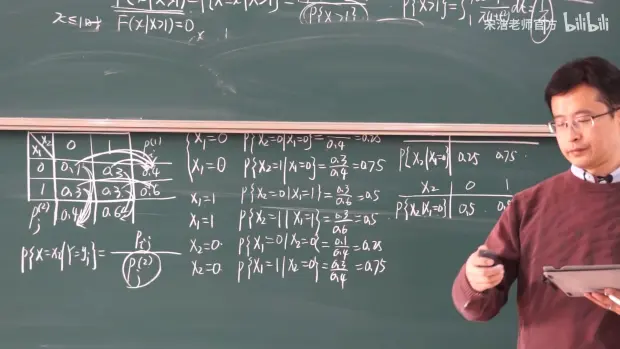 x≤1时
F(x|x>1)=0
P{X>1}
P{X>1}=
宋浩老师官方 bilibili
X₁ X₂ 0 1 P⁽¹⁾
0 0.1 0.3 0.4
1 0.3 0.3 0.6
P_j⁽²⁾ 0.4 0.6
P{X=xᵢ|Y=yⱼ}= P_ij / P_j⁽²⁾
X₁=0 P{X₂=0|X₁=0}= /0.4=0.25
X₁=0 P{X₂=1|X₁=0}=0.3/0.4=0.75
X₁=1 P{X₂=0|X₁=1}=0.3/0.6=0.5
X₁=1 P{X₂=1|X₁=1}=0.3/0.6=0.5
X₂=0 P{X₁=0|X₂=0}=0.1/0.4=0.25
X₂=0 P{X₁=1|X₂=0}=0.3/0.4=0.75
P{X₂|X₁=0} 0.25 0.75
X₂ 0 1
P{X₂|X₁=0} 0.5 0.5